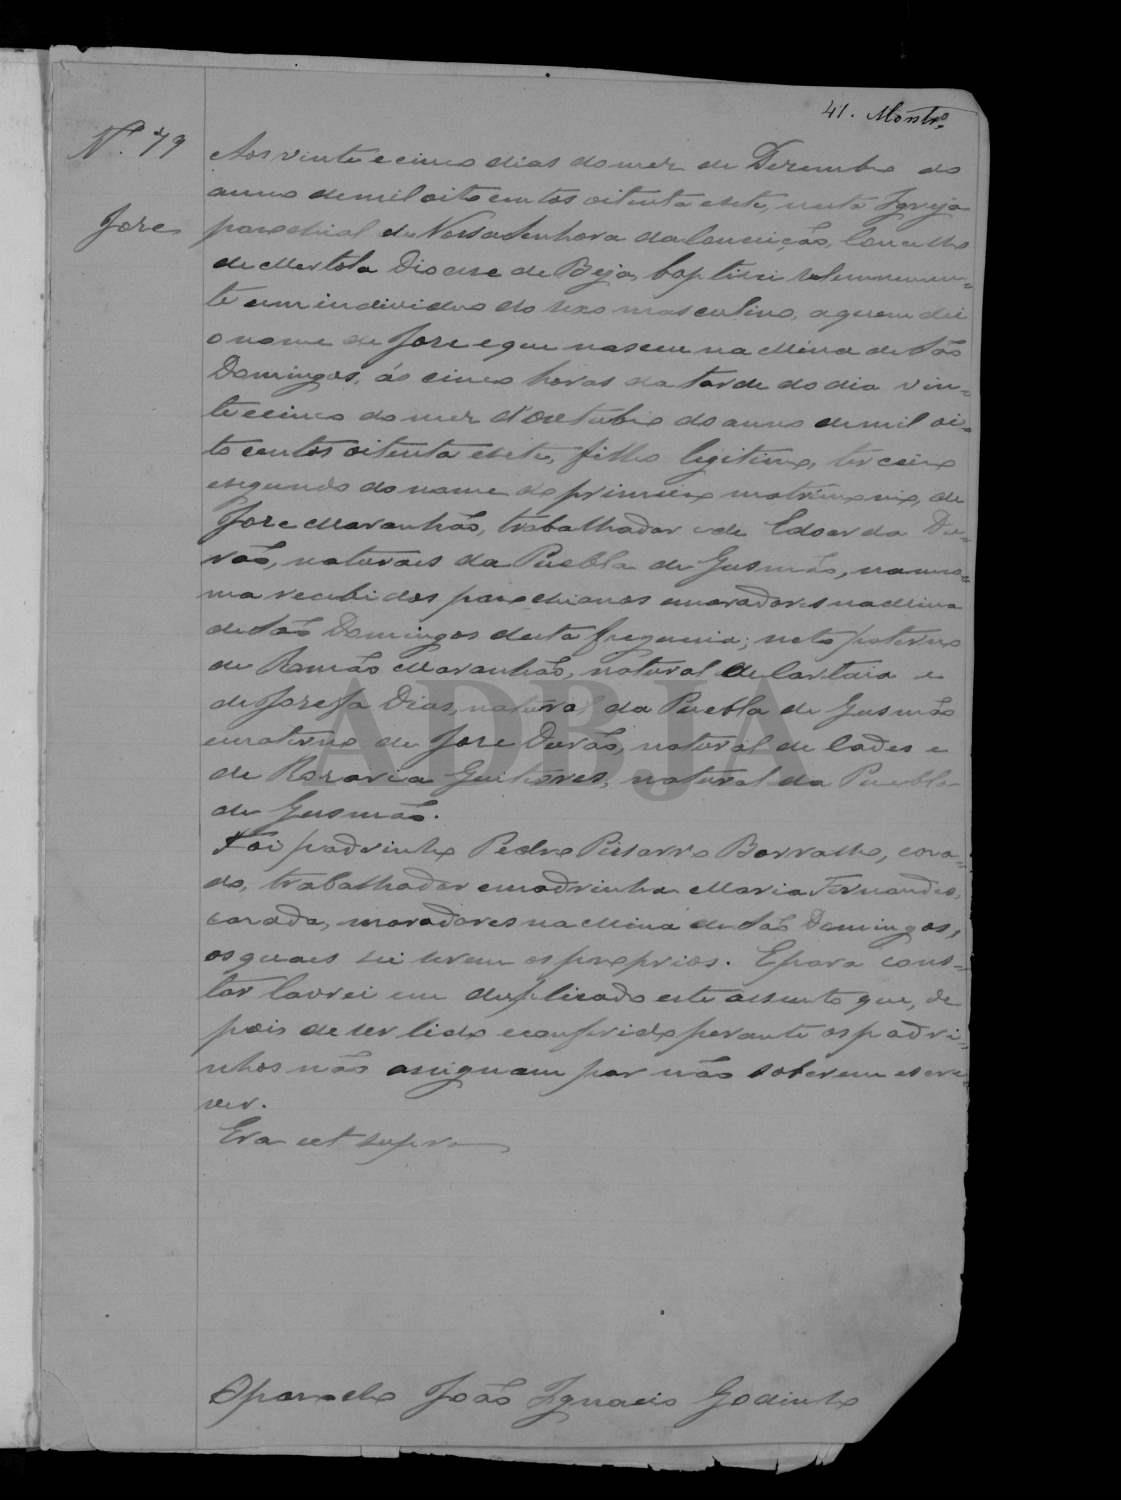 41. Montrº
Nº 79
José
Aos vinte e cinco dias do mez de Dezembro do
anno de mil oito centos oitenta e sete, nesta Igreja
parochial de Nossa Senhora da Conceição, Concelho
de Mertola Diocese de Beja, baptisei solemnemen=
te um individuo do sexo masculino, a quem dei
o nome de José e que nasceu na Mina de São
Domingos, ás cinco horas da tarde do dia vin=
te e cinco do mez d'Outubro do anno de mil oi=
to centos oitenta e sete, filho legitimo, terceiro
e segundo do nome do primeiro matrimonio, de
José Maranhão, trabalhador e de Edoarda Du=
rão, naturaes da Puebla de Gusmão, na mes=
ma recebidos parochianos e moradores na Mina
de São Domingos desta freguesia; neto paterno
de Romão Maranhão, natural de Cartaia e
de Josefa Dias, natural da Puebla de Gusmão
e materno de José Durão, natural de Cades e
de Rozaria Guiterres, natural da Puebla
de Gusmão.
Foi padrinho Pedro Pissarro Borralho, casa=
do, trabalhador e madrinha Maria Fernandes,
casada, moradores na Mina de São Domingos,
os quaes sei serem os proprios. E para cons=
tar lavrei em duplicado este assento que, de
pois de ser lido e conferido perante os padri=
nhos não assignam por não saberem escre
ver.
Era ut supra
O parocho João Ignacio Godinho
ADBJA